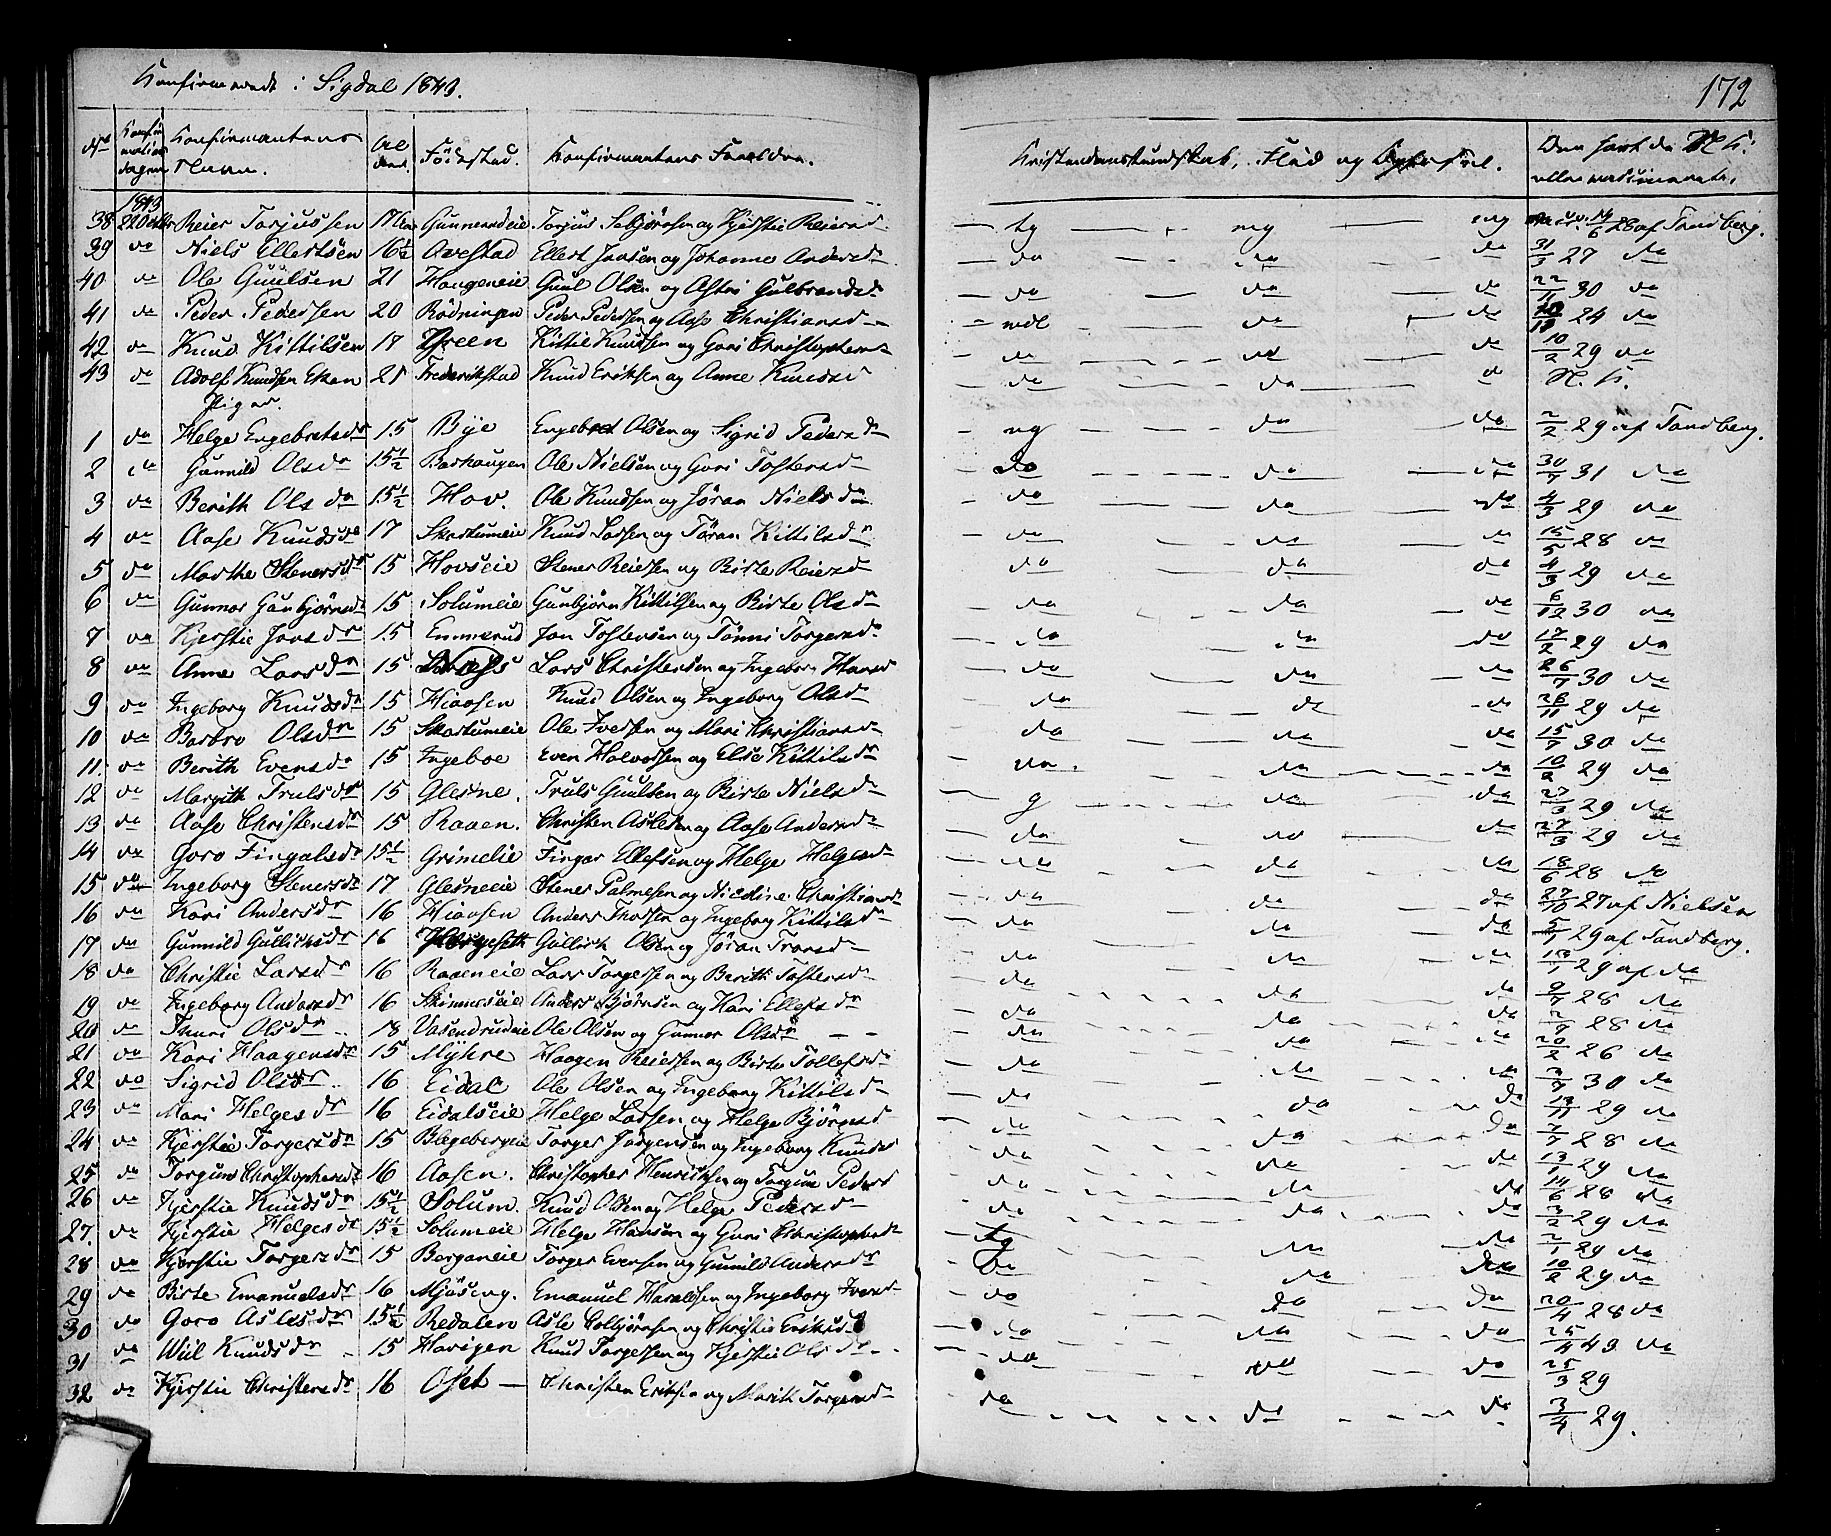 Konfirmerede i Sigdal 1843.
172
No Konfirmations dagen Konfirmantens Navn. Alderen. Födested. Konfirmantens Foreldre. Kristendomskundskab, Flid og Opførsel.
1843
38 22 Octbr Reier Torjussen 17 Gunnerudeie Torjus Sebjörnsen og Kjerstie Reiersd. tg mg mg 28 af Tandberg.
39 do Niels Ellertsen 16½ Avestad Ellert Jonsen og Johanne Andersdr do do do 31/3 27 do
40 do Ole Guulsen 21 Haugeneie Guul Olsen og Astri Gulbrandsdr do do do 22/11 30 do
41 do Peder Pedersen 20 Rödningen Peder Pedersen og Aase Christiansd mdl do do 24 do
42 do Knud Kittilsen 17 Green Kittil Knudsen og Gori Christophersd do do do 10/2 29 do
43 do Adolf Knudsen Ekern 21 Frederikstad Knud Eriksen og Anne Knudsd do do do N. K.
Piger.
1 do Helge Engebretsdr 15 Bye Engebret Olsen og Sigrid Pedersdr mg do do 2/2 29 af Tandberg.
2 do Gunnild Olsdr 15½ Bakhaugen Ole Nielsen og Gori Tostensd do do do 30/7 31 do
3 do Berith Olsdr 15½ Hov. Ole Knudsen og Jöran Nielsdr do do do 4/3 29 do
4 do Aase Knudsdr 17 Skartumeie Knud Larsen og Töran Kittilsdr do do do 15/5 28 do
5 do Marthe Stenersdr 15 Hovseie Stener Reiersen og Birte Reiersd do do do 4/3 29 do
6 do Gunnor Gunbjörnsd 15 Solumeie Gunbjörn Kittilsen og Birte Olsdr do do do 6/12 30 do
7 do Kjerstie Jonsdr 15 Emmerud Jon Tostensen og Tönni Torgersdr do do do 17/2 29 do
8 do Anne Larsdr 15 Lars Christensen og Ingeborg Hansd do do do 26/7 30 do
9 do Ingeborg Knudsdr 15 Hiaasen Knud Olsen og Ingeborg Olsd do do do 28/11 29 do
10 do Barbro Olsdr 15 Skartumeie Ole Iversen og Mari Christiansd do do do 15/7 30 do
11. do Berith Evensdr 15 Ingeboe Even Halvorsen og Else Kittilsdr do do do 10/2 29 do
12 do Margith Trulsdr 15 Glesne. Truls Guulsen og Birte Nielsdr g do do 27/3 29 do
13 do Aase Christensdr 15 Raaen. Christen Aslesen og Aase Andersdr do do do 27/3 29 do
14 do Goro Fingalsdr 15½ Grimelie Fingar Ellefsen og Helge Helgesd do do do 18/6 28 do
15 do Ingeborg Stenersdr 17. Glesneeie Stener Palmesen og Nicoline Christiansd do do do 27/10 27 af Nielsen
16 do Kari Andersdr 16 Hiaasen Anders Thorsen og Ingeborg Kittilsd do do do 5/1 29 af Tandberg.
17 do Gunnild Gullichsdr 16 Gullick Olsen og Jöran Fransd do do do 29 af do
18 do Christie Larsdr 16 Raaeneie Lars Torgersen og Berith Tostensd do do do 9/7 28 do
19 do Ingeborg Andersdr 16 Skinneseie Anders Björnsen og Kari Ellefsdr do do do 28 do
20 do Olsdr 18 Vasendrudeie Ole Olsen og Gunnor Olsdr do do do 20/2 26 do
21 do Kari Haagensdr 15 Myhre Haagen Reiersen og Birte Tollefsdr do do do 30 do
22 do Sigrid Olsdr 16 Eidal Ole Olsen og Ingeborg Kittilsd do do do 29 do
23 do Mari Helgesdr 16 Eidalseie Helge Larsen og Helge Björnsd do do do 7/7 28 do
24 do Kjerstie Torgersdr 15 Blegebergeie Torger Jörgensen og Ingeborg Knudsd do do do 13/1 29 do
25 do Torgun Christophersdr 16 Aasen. Christopher Henriksen og Torgun Pedersd do do do 14/6 28 do
26 do Kjerstie Knudsdr 15½ Solum. Knud Olsen og Helge Pedersd do do do 3/2 29 do
27. do Kjerstie Helgesdr 15½ Solumeie Helge Hansen og Guri Christophersdr tg do do 2/1 29 do
28 do Kjerstie Torgersdr 15 Borganeie Torger Evensen og Gunnild Andersdr do do do 10/2 29 do
29 do Birte Emanuelsdr 16 Mjöseng. Emanuel Haraldsen og Ingeborg Iversd do do do 20/4 28 do
30 do Goro Aslesdr 15½ Redalen Asle Colbjörnsen og Christie Eriksd do do do 25/4 43 do
31 do Wiil Knudsdr 15 Havigen Knud Torgersen og Kjerstie Olsdr do do do 25/3 29
32 do Kjerstie Christensdr 16 Oset Christen Eriksen og Marit Torgersd do do do 3/4 29.